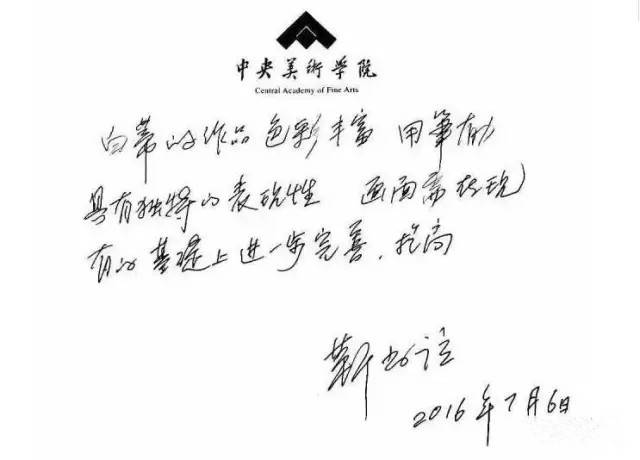 中央美術学院
Central Academy of Fine Arts
白蒂的作品色彩丰富 用筆有力
具有独特的表现性 画面需在现
有的基礎上进一步完善、提高
靳尚谊
2016年7月6日